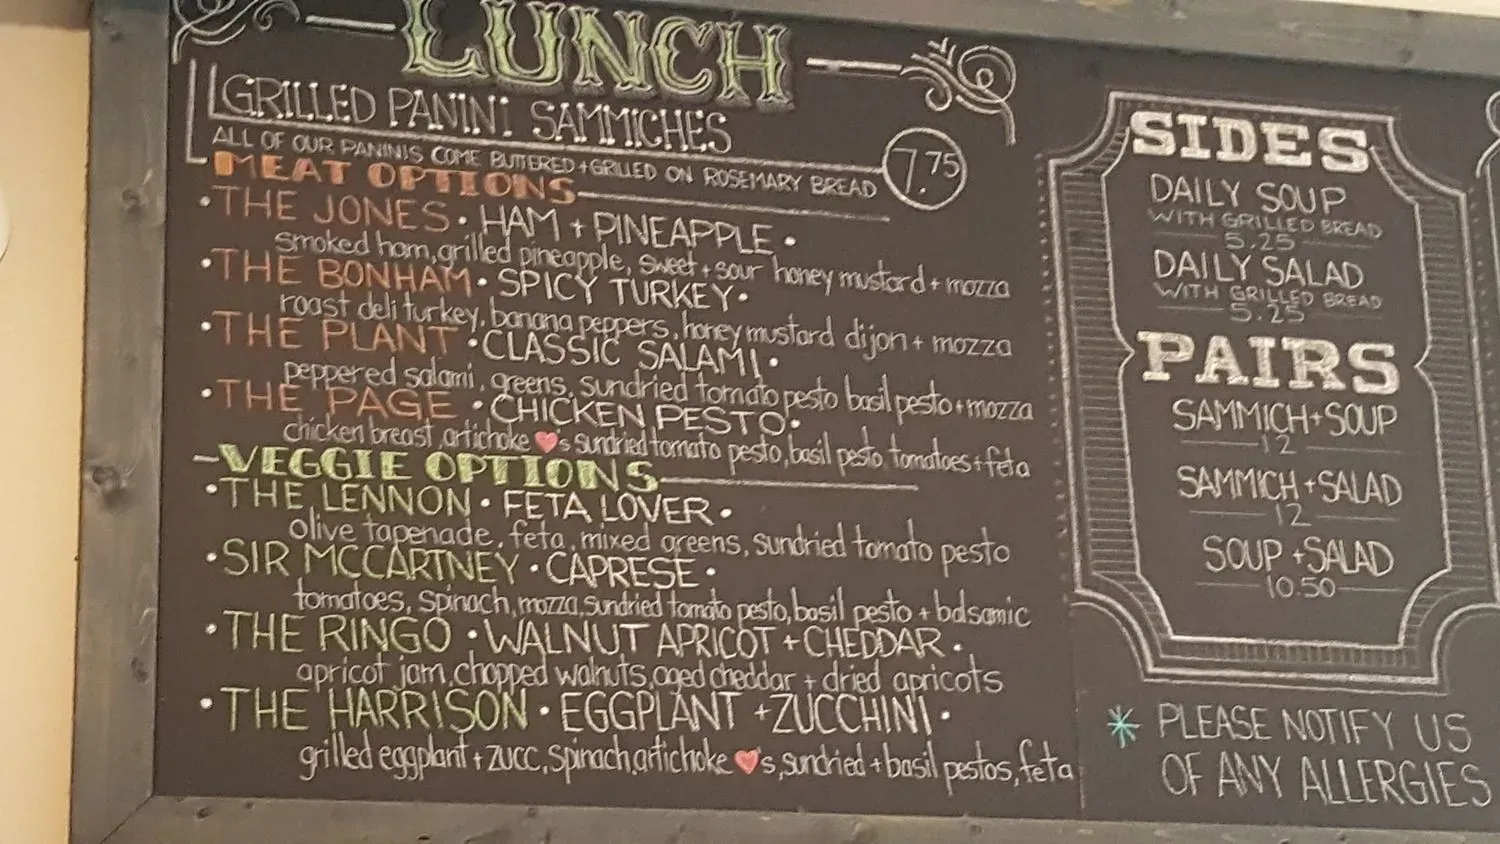 LUNCH
GRILLED PANINI SAMMICHES
ALL OF OUR PANINIS COME BUTTERED + GRILLED ON ROSEMARY BREAD
7.75
MEAT OPTIONS
• THE JONES • HAM + PINEAPPLE •
smoked ham, grilled pineapple, sweet + sour honey mustard + mozza
• THE BONHAM • SPICY TURKEY •
roast deli turkey, banana peppers, honey mustard dijon + mozza
• THE PLANT • CLASSIC SALAMI •
peppered salami, greens, sundried tomato pesto basil pesto + mozza
• THE PAGE • CHICKEN PESTO •
chicken breast, artichoke ♥s sundried tomato pesto, basil pesto, tomatoes + feta
VEGGIE OPTIONS
• THE LENNON • FETA LOVER •
olive tapenade, feta, mixed greens, sundried tomato pesto
• SIR MCCARTNEY • CAPRESE •
tomatoes, spinach, mozza, sundried tomato pesto, basil pesto + balsamic
• THE RINGO • WALNUT APRICOT + CHEDDAR •
apricot jam, chopped walnuts, aged cheddar + dried apricots
• THE HARRISON • EGGPLANT + ZUCCHINI •
grilled eggplant + zucc, spinach, artichoke ♥'s, sundried + basil pestos, feta
SIDES
DAILY SOUP
WITH GRILLED BREAD
5.25
DAILY SALAD
WITH GRILLED BREAD
5.25
PAIRS
SAMMICH + SOUP
12
SAMMICH + SALAD
12
SOUP + SALAD
10.50
* PLEASE NOTIFY US
OF ANY ALLERGIES